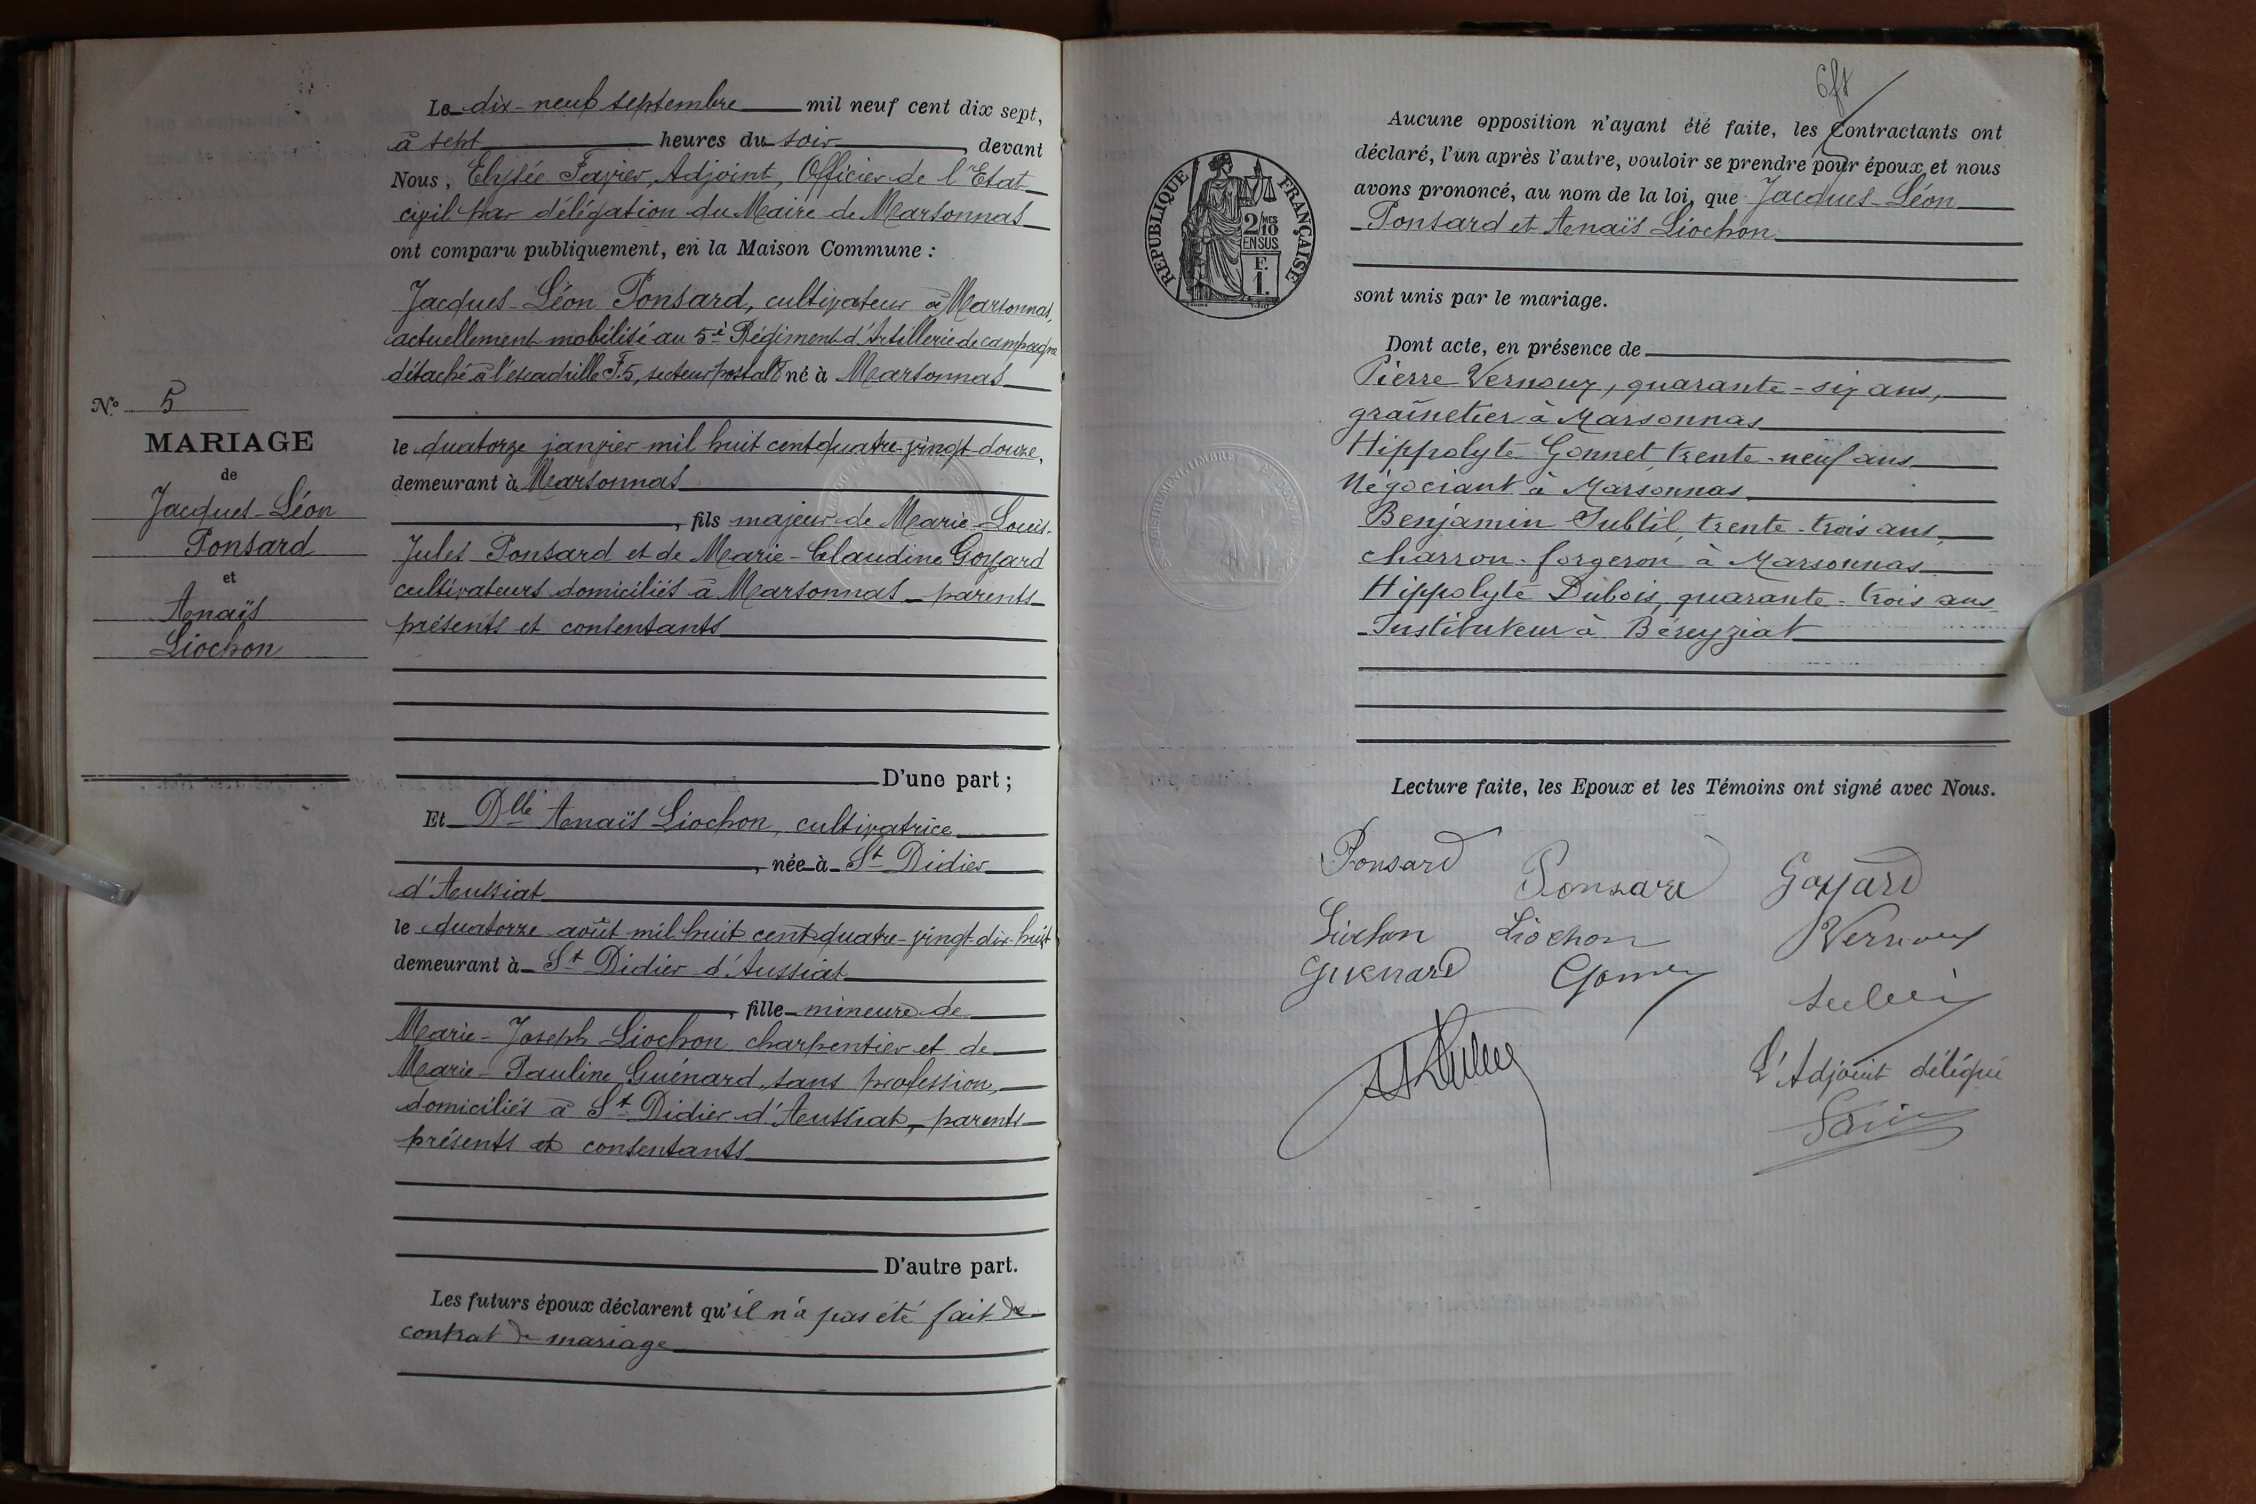 Le dix-neuf septembre mil neuf cent dix sept,
à sept heures du soir, devant
Nous, Elysée Favier, Adjoint, Officier de l'Etat
civil par délégation du Maire de Marsonnas
ont comparu publiquement, en la Maison Commune :
Jacques-Léon Ponsard, cultivateur à Marsonnas,
actuellement mobilisé au 5è Régiment d'Artillerie de campagne
détaché à l'escadrille F.5, secteur postal 8 né à Marsonnas
le quatorze janvier mil huit cent quatre-vingt-douze,
demeurant à Marsonnas
, fils majeur de Marie-Louis-
Jules Ponsard et de Marie-Claudine Goyard
cultivateurs domiciliés à Marsonnas - parents
présents et consentants
D'une part ;
Et Dlle Anaïs Liochon, cultivatrice
, née à St Didier
d'Aussiat
le quatorze août mil huit cent quatre-vingt dix-huit
demeurant à St Didier d'Aussiat
, fille mineure de
Marie-Joseph Liochon charpentier et de
Marie-Pauline Guénard, sans profession,
domiciliés à St Didier d'Aussiat, parents
présents et consentants
D'autre part.
Les futurs époux déclarent qu'il n'a pas été fait de
contrat de mariage
No 5
MARIAGE
de
Jacques-Léon
Ponsard
et
Anaïs
Liochon
6ft
Aucune opposition n'ayant été faite, les Contractants ont
déclaré, l'un après l'autre, vouloir se prendre pour époux et nous
avons prononcé, au nom de la loi, que Jacques-Léon
Ponsard et Anaïs Liochon
sont unis par le mariage.
RÉPUBLIQUE FRANÇAISE
2/MES
10
EN SUS
F.
1.
Dont acte, en présence de
Pierre Vernoux, quarante-six ans,
grainetier à Marsonnas
Hippolyte Gonnet trente-neuf ans
Négociant à Marsonnas
Benjamin Subtil, trente-trois ans,
charron-forgeron, à Marsonnas
Hippolyte Dubois, quarante-trois ans
Instituteur à Béreyziat
Lecture faite, les Epoux et les Témoins ont signé avec Nous.
Ponsard Ponsard Goyard
Liochon Liochon Vernoux
Guenard
L'Adjoint délégué